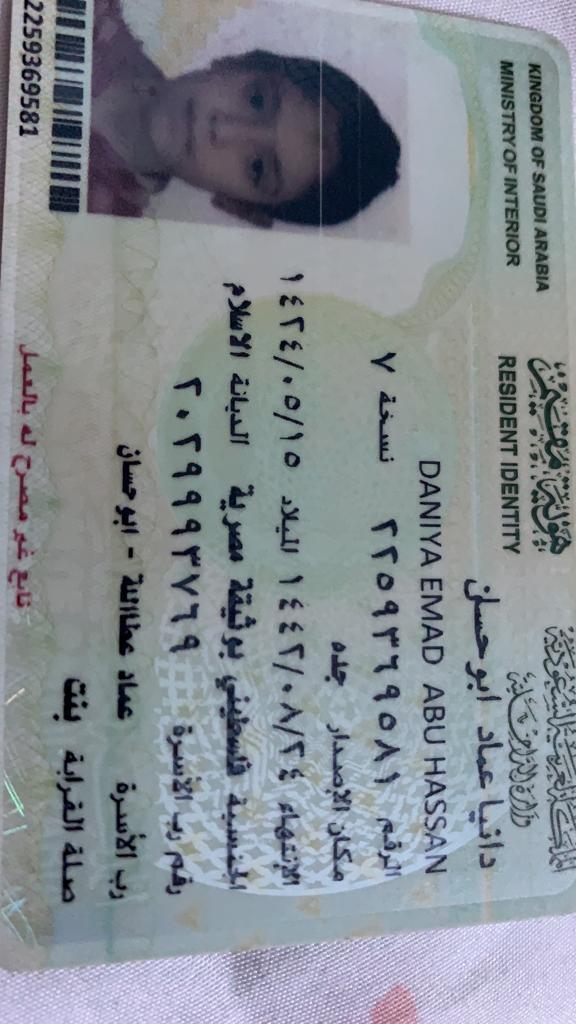 المملكة العربية السعودية
وزارة الداخلية
هوية مقيم
KINGDOM OF SAUDI ARABIA
MINISTRY OF INTERIOR
RESIDENT IDENTITY
دانيا عماد ابو حسان
DANIYA EMAD ABU HASSAN
الرقم ٢٢٥٩٣٦٩٥٨١ نسخة ٧
مكان الإصدار جده
الإنتهاء ١٤٤٢/٠٨/٢٤ الميلاد ١٤٢٤/٠٥/١٥
الجنسية فلسطيني بوثيقة مصرية الديانة الاسلام
رقم رب الأسرة ٢٠٢٩٩٩٣٧٦٩
رب الأسرة عماد عطاالله - ابو حسان
صلة القرابة بنت
تابع غير مصرح له بالعمل
2259369581